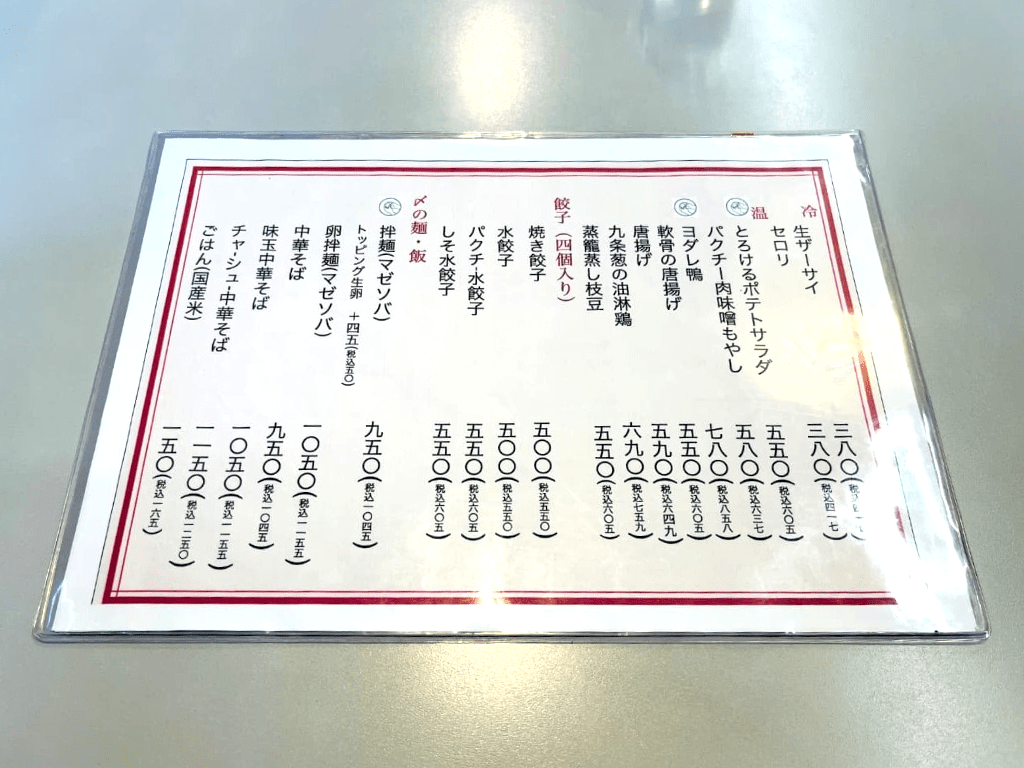 冷
生ザーサイ 三八〇(税込四一
セロリ 三八〇(税込四一七)
温
とろけるポテトサラダ 五五〇(税込六〇五)
パクチー肉味噌もやし 五八〇(税込六三七)
ヨダレ鴨 七八〇(税込八五八)
軟骨の唐揚げ 五五〇(税込六〇五)
唐揚げ 五九〇(税込六四九)
九条葱の油淋鶏 六九〇(税込七五九)
蒸籠蒸し枝豆 五五〇(税込六〇五)
餃子(四個入り)
焼き餃子 五〇〇(税込五五〇)
水餃子 五〇〇(税込五五〇)
パクチー水餃子 五五〇(税込六〇五)
しそ水餃子 五五〇(税込六〇五)
〆の麺・飯
拌麺(マゼソバ) 九五〇(税込一〇四五)
トッピング生卵 +四五(税込五〇)
卵拌麺(マゼソバ) 一〇五〇(税込一一五五)
中華そば 九五〇(税込一〇四五)
味玉中華そば 一〇五〇(税込一一五五)
チャーシュー中華そば 一一五〇(税込一二五〇)
ごはん(国産米) 一五〇(税込一六五)